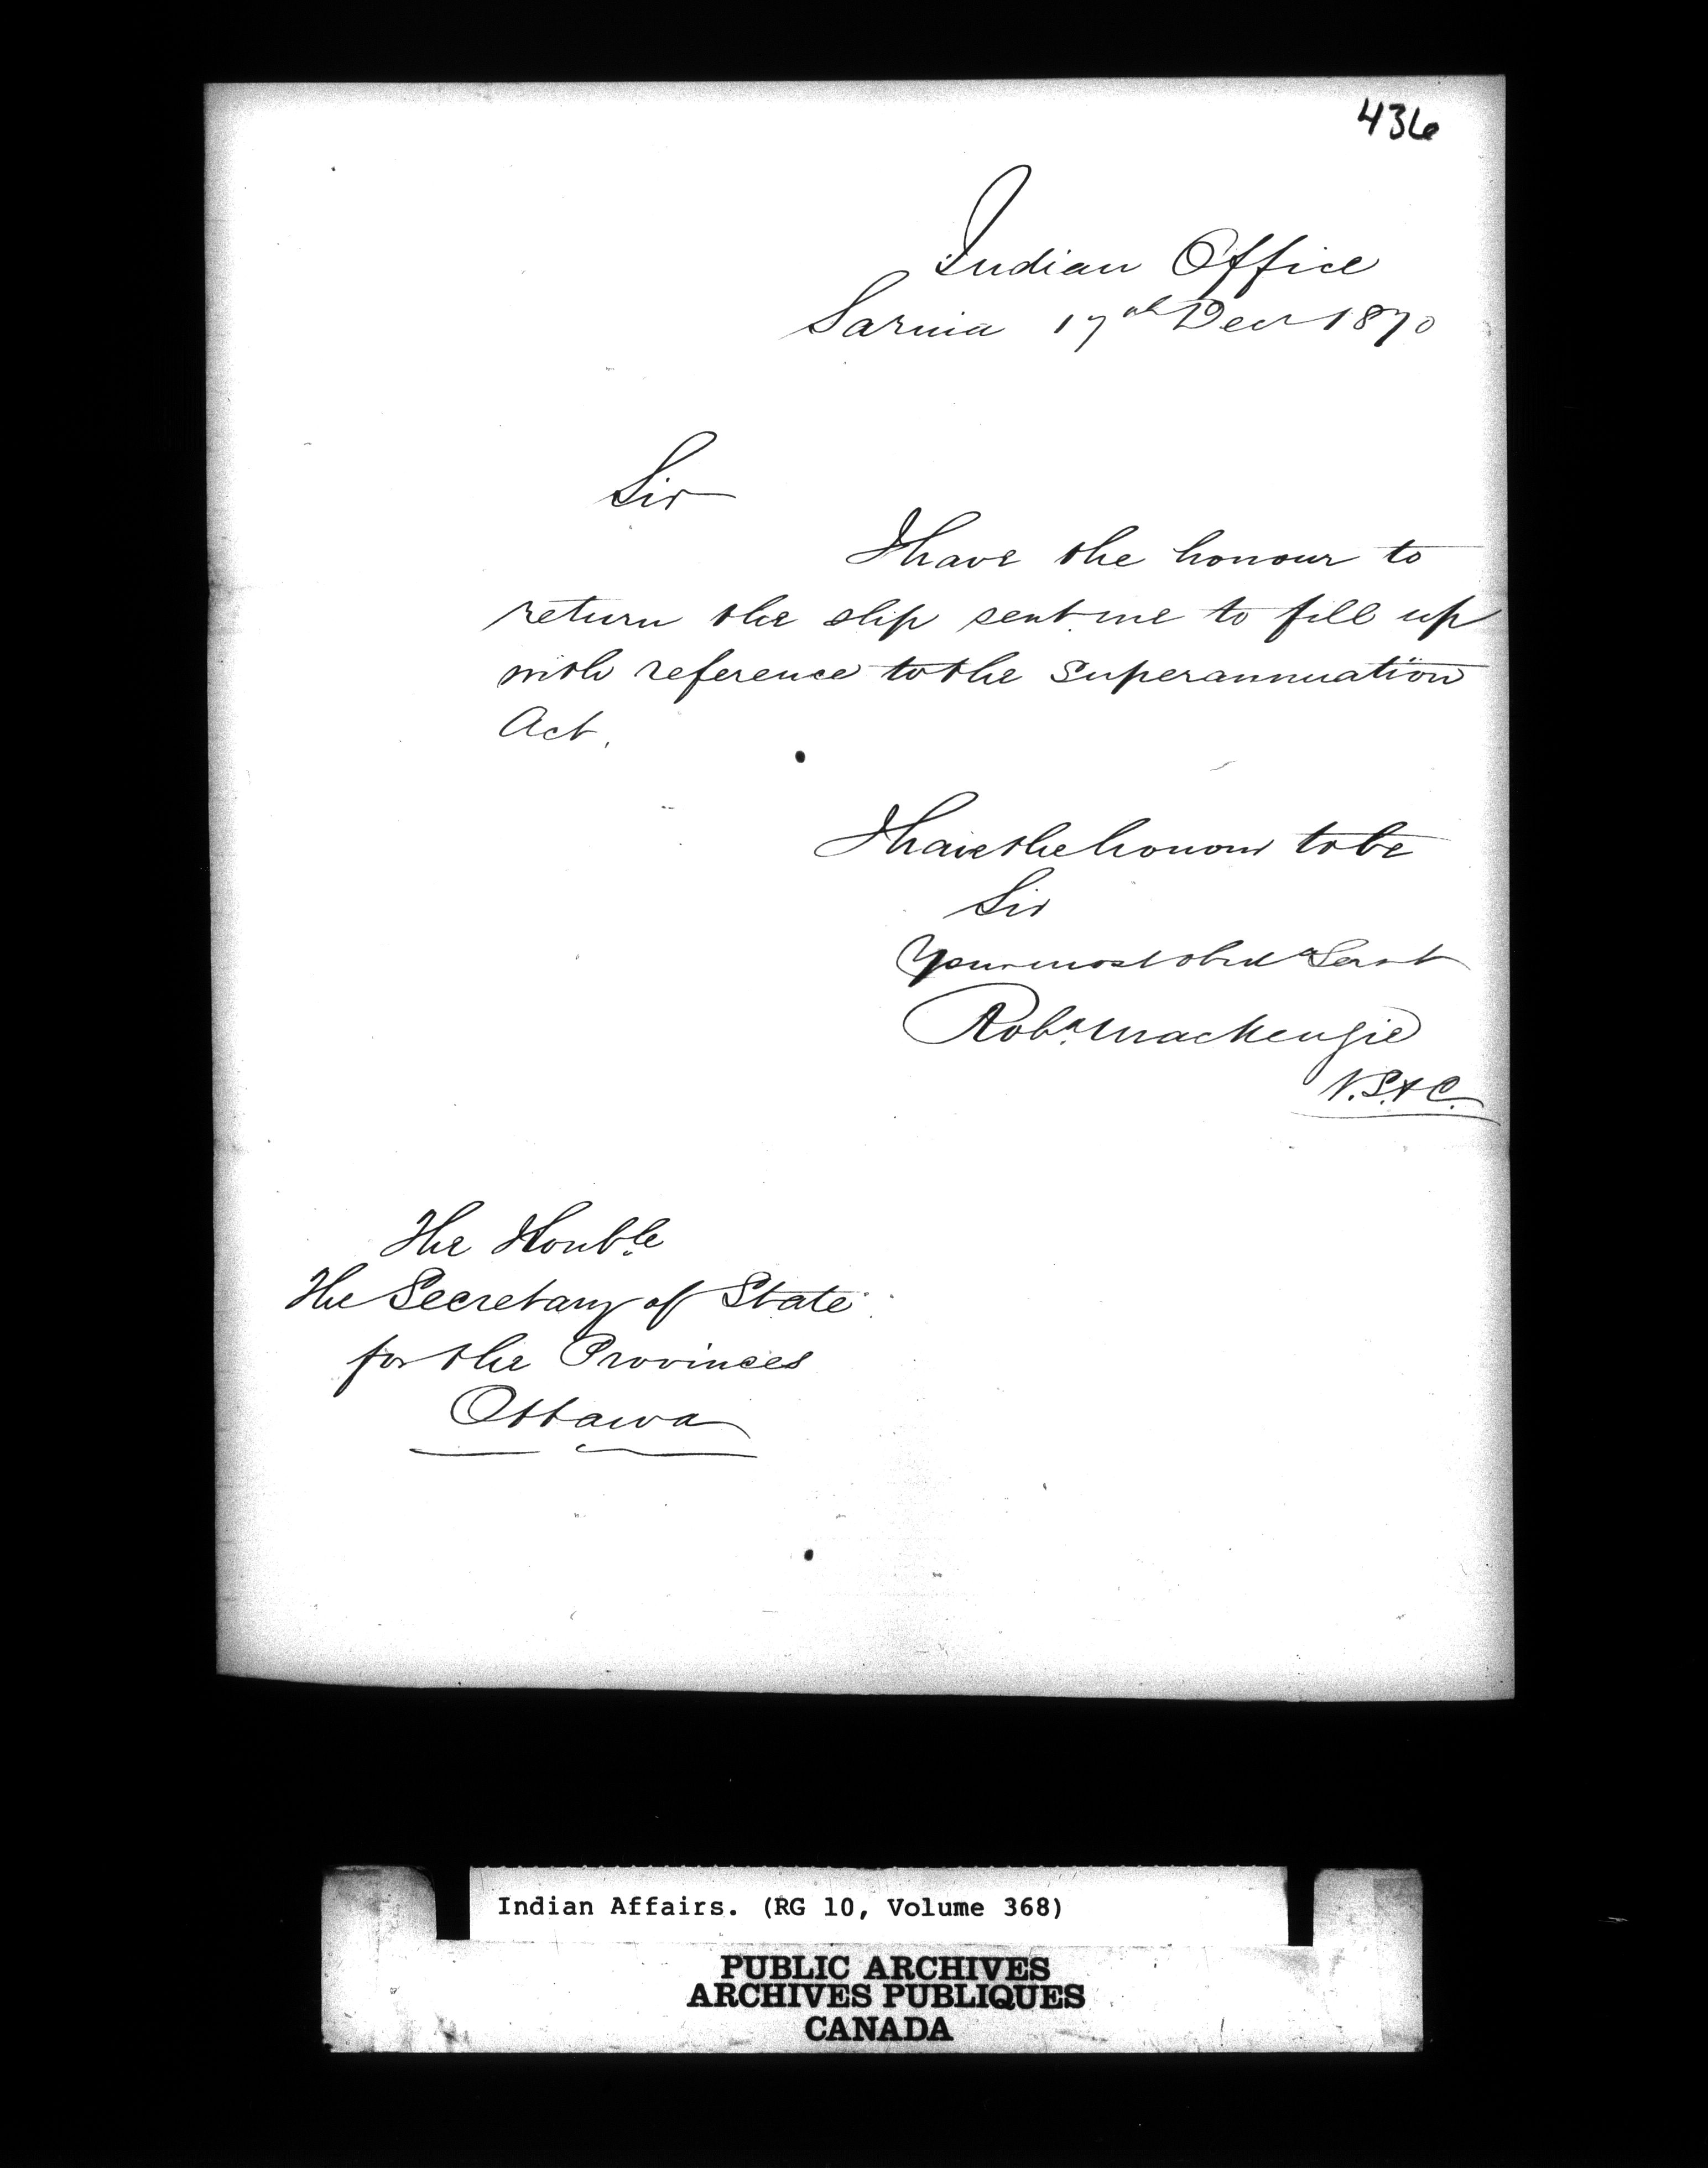 436
Indian Office
Sarnia 17th Decr 1870
Sir
I have the honour to
return the slip sent me to fill up
with reference to the Superannuation
Act.
I have the honour to be
Sir
Your most obedt Servt
Robt Mackenzie
V.S.&C.
The Honble
The Secretary of State
for the Provinces
Ottawa
Indian Affairs. (RG 10, Volume 368)
PUBLIC ARCHIVES
ARCHIVES PUBLIQUES
CANADA